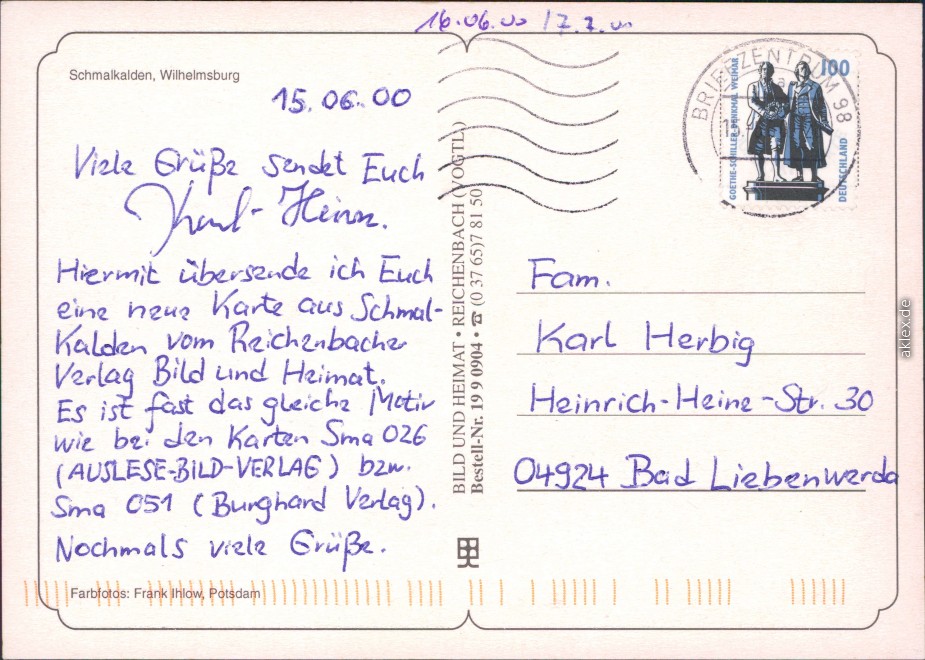 16.06.00
Schmalkalden, Wilhelmsburg
15.06.00
Viele Grüße sendet Euch
Karl-Heinz.
Hiermit übersende ich Euch
eine neue Karte aus Schmal-
kalden vom Reichenbacher
Verlag Bild und Heimat.
Es ist fast das gleiche Motiv
wie bei den Karten Sma 026
(AUSLESE-BILD-VERLAG) bzw.
Sma 051 (Burghard Verlag).
Nochmals viele Grüße.
Farbfotos: Frank Ihlow, Potsdam
BILD UND HEIMAT • REICHENBACH (VOGTL.)
Bestell-Nr. 19 9 0904 • ☎ (0 37 65) 7 81 50
BRIEFZENTRUM 98
GOETHE-SCHILLER-DENKMAL WEIMAR
100
DEUTSCHLAND
Fam.
Karl Herbig
Heinrich-Heine-Str. 30
04924 Bad Liebenwerda
aklex.de